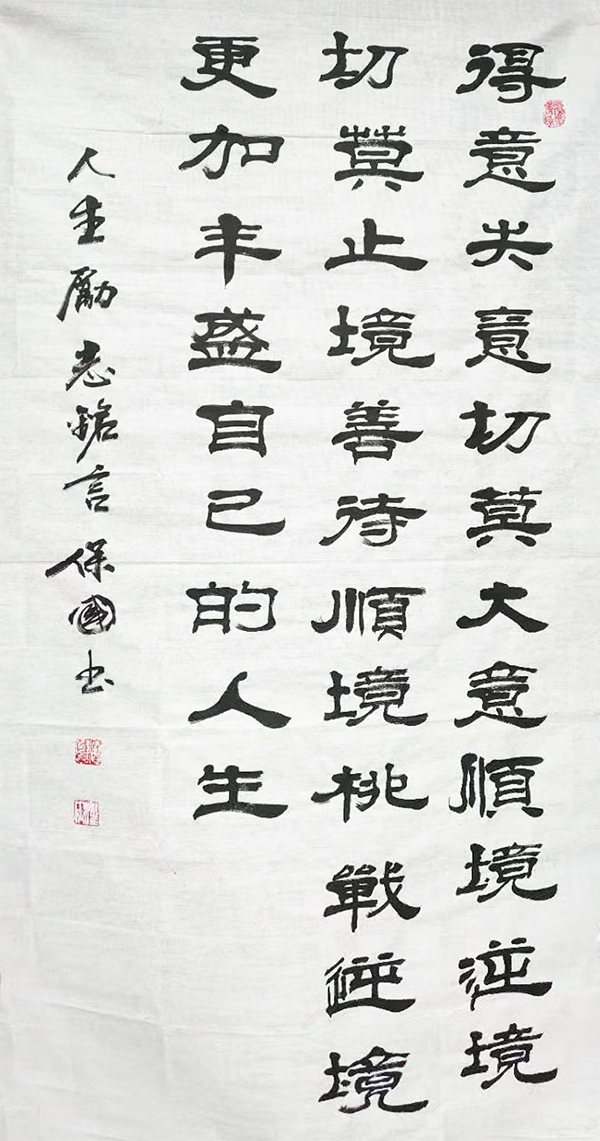 得意失意切莫大意順境逆境
切莫止境善待順境挑戰逆境
更加丰盛自己的人生
人生勵志銘言保國书